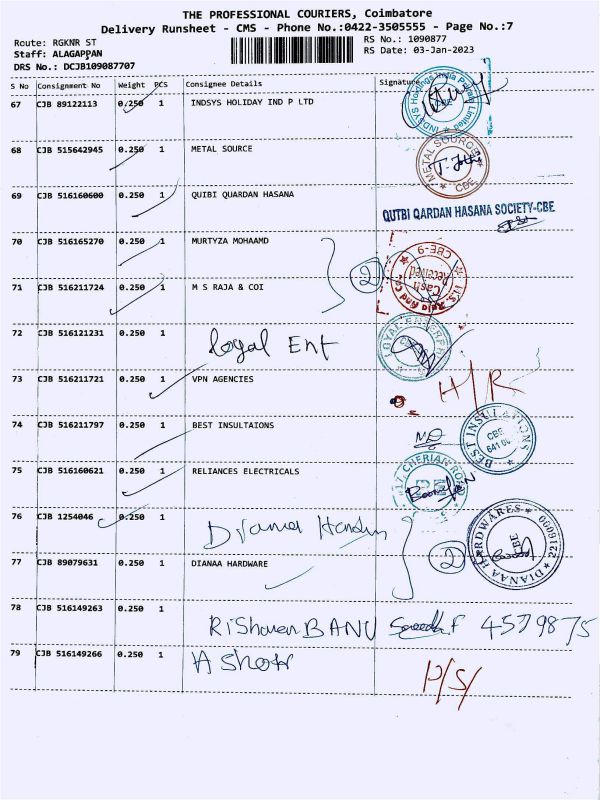 THE PROFESSIONAL COURIERS, Coimbatore
Delivery Runsheet - CMS - Phone No.:0422-3505555 - Page No.:7
Route: RGKNR ST
RS No.: 1090877
Staff: ALAGAPPAN
RS Date: 03-Jan-2023
DRS No.: DCJB109087707
S No Consignment No Weight PCS Consignee Details Signature
67 CJB 89122113 0.250 1 INDSYS HOLIDAY IND P LTD
INDSYS Holidays India Private Limited CBE
68 CJB 515642945 0.250 1 METAL SOURCE
METAL SOURCE CBE
69 CJB 516160600 0.250 1 QUIBI QUARDAN HASANA
QUTBI QARDAN HASANA SOCIETY-CBE
70 CJB 516165270 0.250 1 MURTYZA MOHAAMD
71 CJB 516211724 0.250 1 M S RAJA & COI
2
M.S. Raja and Co CBE-9 Cash Received
72 CJB 516121231 0.250 1 Loyal Ent
LOYAL ENTERPR
73 CJB 516211721 0.250 1 VPN AGENCIES
H/R
74 CJB 516211797 0.250 1 BEST INSULTAIONS
BEST INSULATIONS CBE
75 CJB 516160621 0.250 1 RELIANCES ELECTRICALS
CHERIAN ROAD
76 CJB 1254046 0.250 1
77 CJB 89079631 0.250 1 DIANAA HARDWARE
2
DIANAA HARDWARES CBE
78 CJB 516149263 0.250 1 BANU 4579875
79 CJB 516149266 0.250 1 Ashok
P/S/